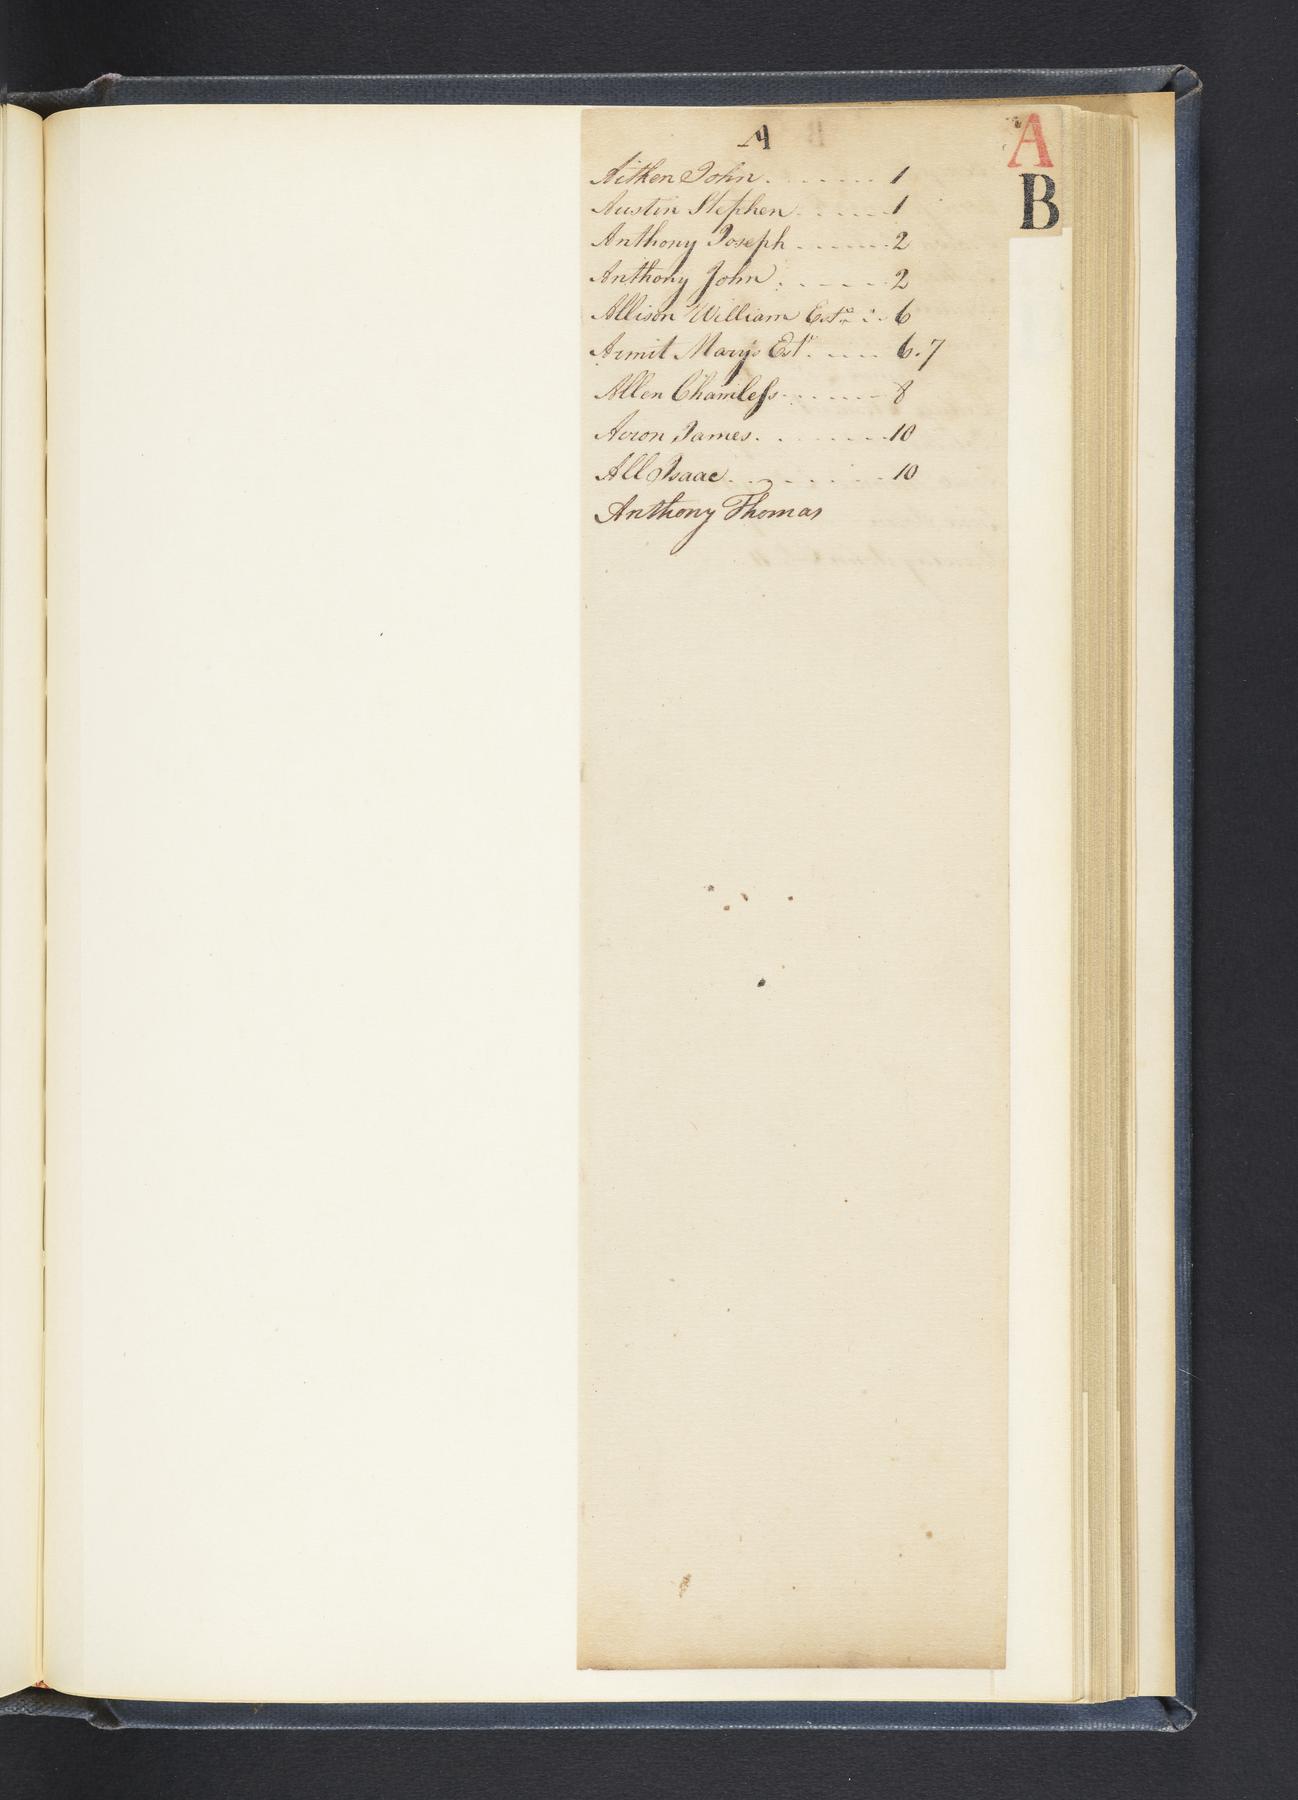 A
A
B
Aitken John . . . . . . . 1
Austin Stephen . . . . . 1
Anthony Joseph . . . . . . . 2
Anthony John . . . . . 2
Allison William Este . . 6
Armit Mary's Est. . . . . 6.7
Allen Chamless . . . . . . . 8
James . . . . . . . 10
All Isaac . . . . . . . 10
Anthony Thomas